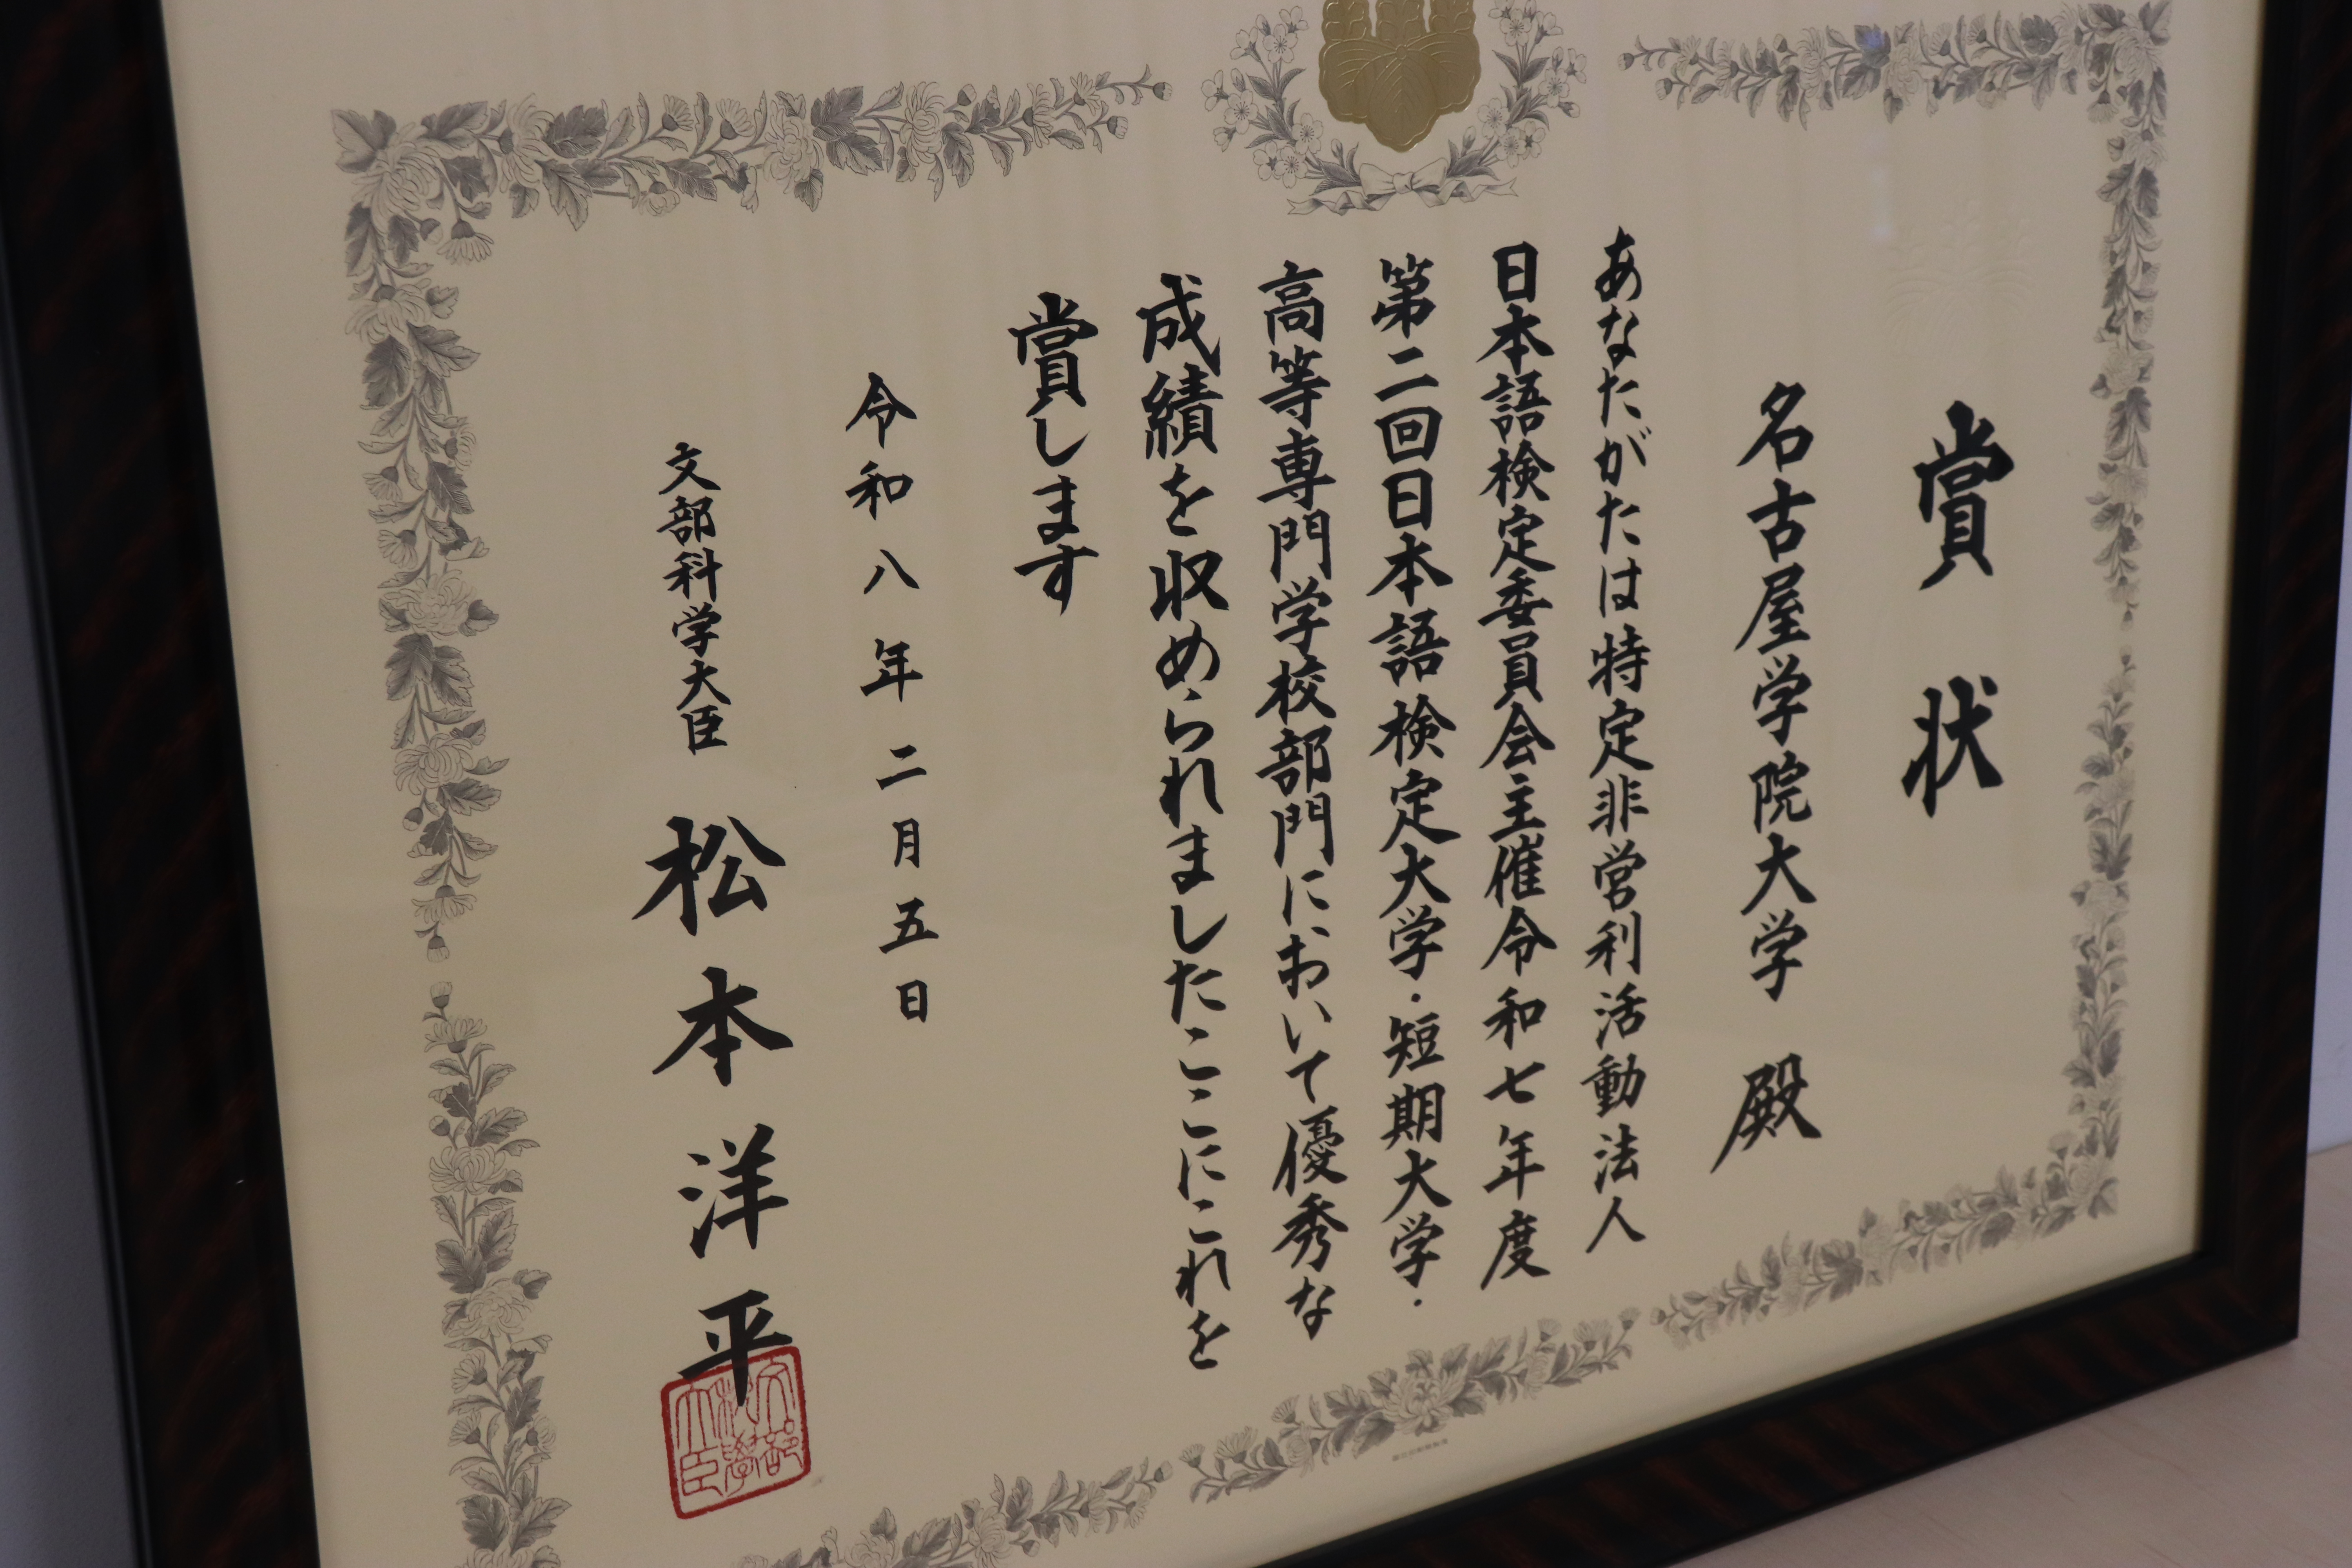 賞状
名古屋学院大学 殿
あなたがたは特定非営利活動法人
日本語検定委員会主催令和七年度
第二回日本語検定大学・短期大学・
高等専門学校部門において優秀な
成績を収められましたここにこれを
賞します
令和八年二月五日
文部科学大臣 松本洋平
文部科學大臣